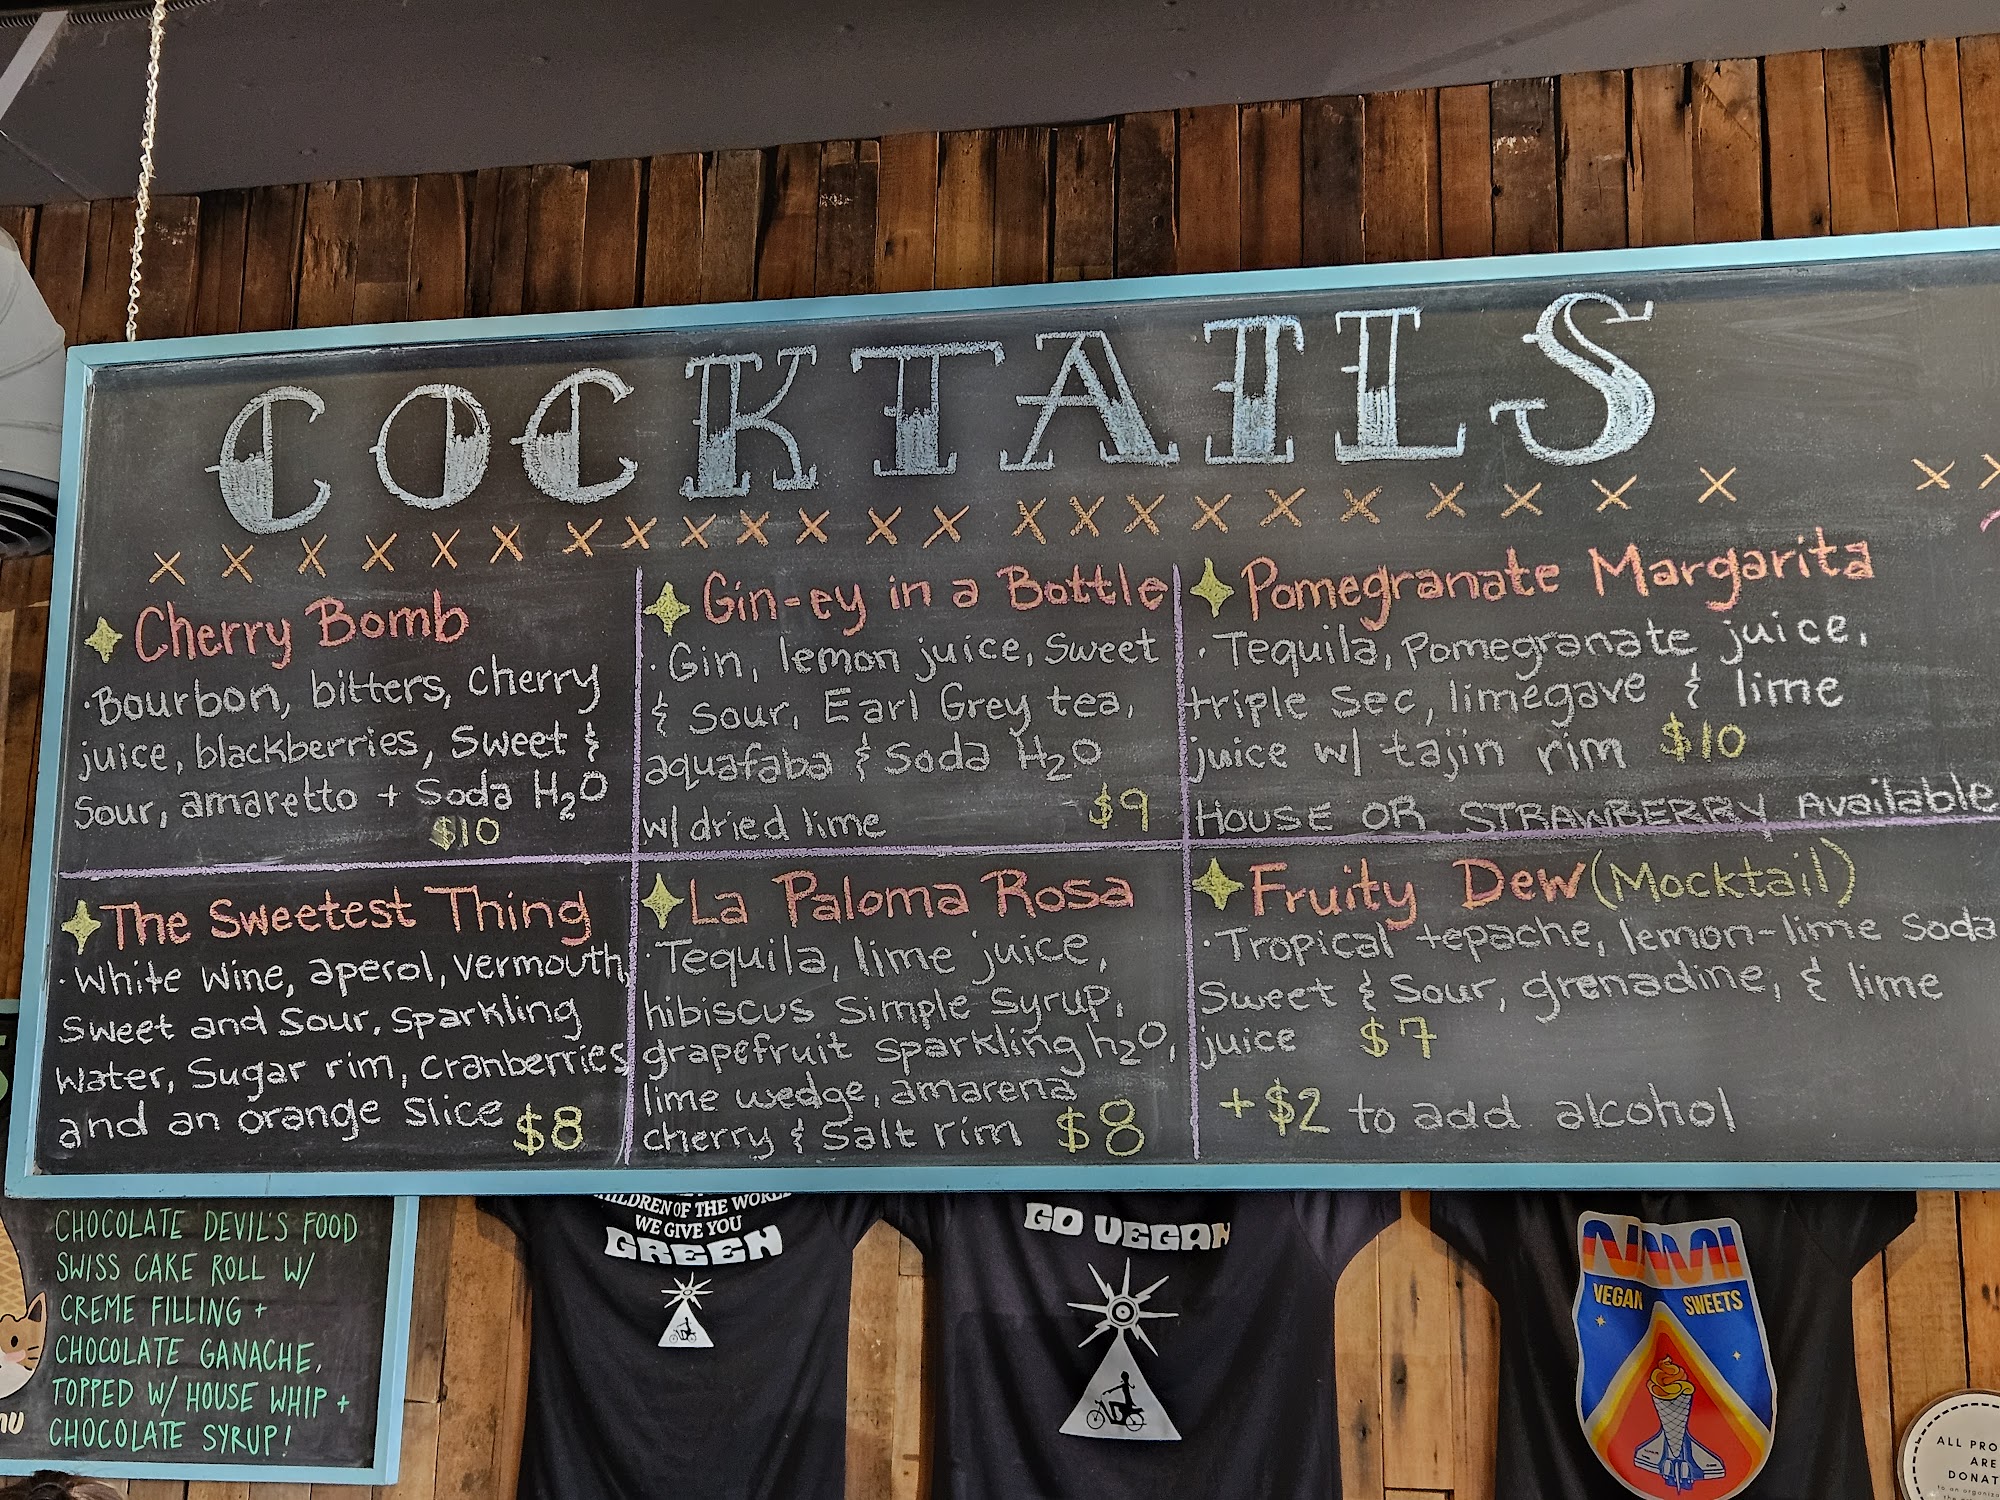 COCKTAILS
Cherry Bomb
· Bourbon, bitters, cherry
juice, blackberries, sweet &
sour, amaretto + Soda H₂O
$10
Gin-ey in a Bottle
· Gin, lemon juice, sweet
& sour, Earl Grey tea,
aquafaba & soda H₂O
w/ dried lime $9
Pomegranate Margarita
· Tequila, Pomegranate juice,
triple sec, limegave & lime
juice w/ tajin rim $10
HOUSE OR STRAWBERRY Available
The Sweetest Thing
· White wine, aperol, vermouth,
sweet and sour, sparkling
water, sugar rim, cranberries
and an orange slice $8
La Paloma Rosa
· Tequila, lime juice,
hibiscus simple syrup,
grapefruit sparkling h₂O,
lime wedge, amarena
cherry & salt rim $8
Fruity Dew (Mocktail)
· Tropical tepache, lemon-lime soda
sweet & sour, grenadine, & lime
juice $7
+$2 to add alcohol
CHOCOLATE DEVIL'S FOOD
SWISS CAKE ROLL W/
CREME FILLING +
CHOCOLATE GANACHE,
TOPPED W/ HOUSE WHIP +
CHOCOLATE SYRUP!
CHILDREN OF THE WORLD
WE GIVE YOU
GREEN
GO VEGAN
NAMI
VEGAN SWEETS
ALL PRO
ARE
DONAT